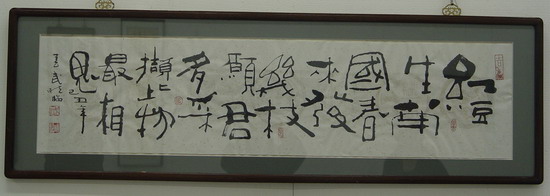 紅豆
生南
國春
來發
幾枝
願君
多采
擷此物
最相
思